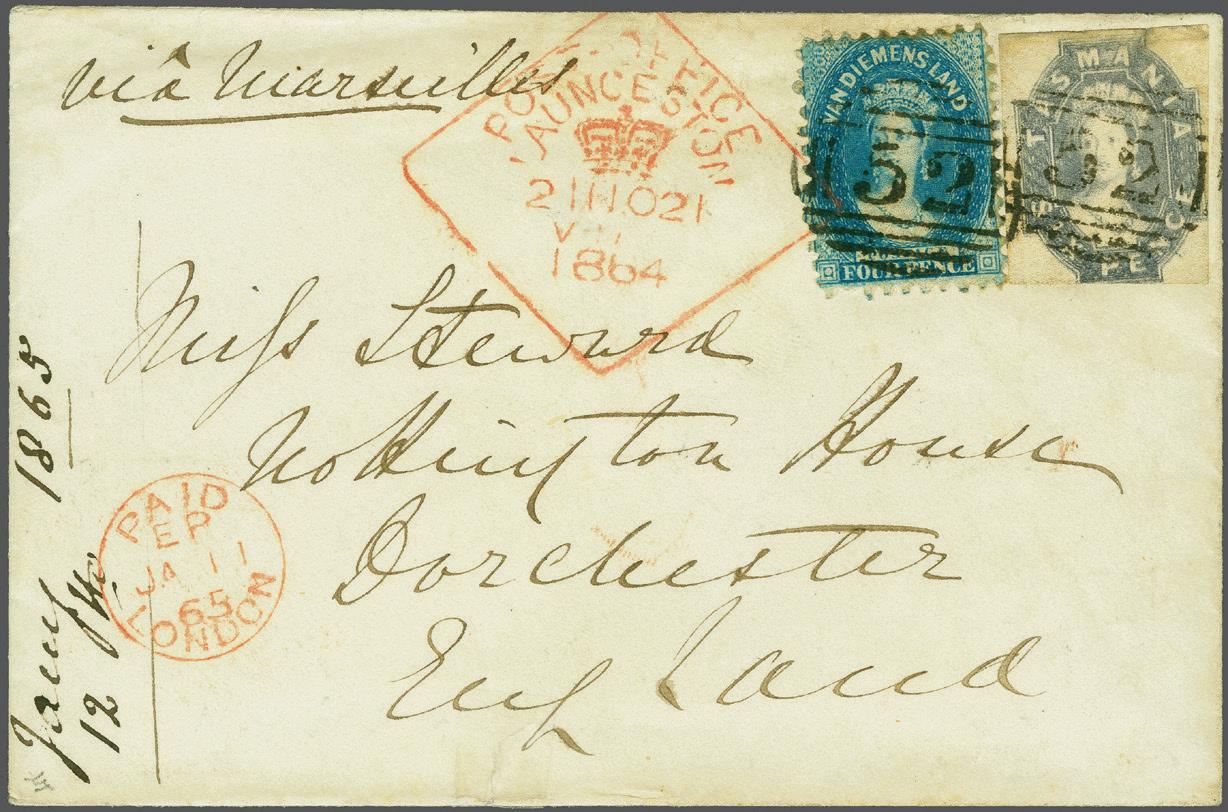 viâ Marseilles
POST OFFICE
LAUNCESTON
1864
VAN DIEMENS LAND
52
FOUR PENCE
TASMANIA
52
PENCE
Miss Steward
Nottington House
Dorchester
England
PAID
EP
JA 11
65
LONDON
1865
12th